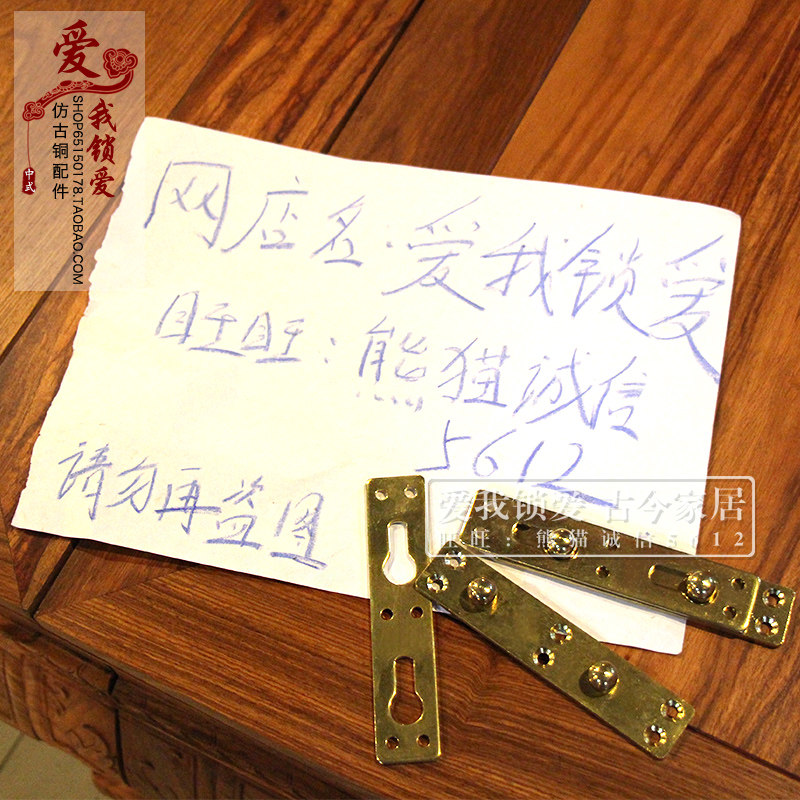 爱
我锁爱
SHOP65150178.TAOBAO.COM
仿古铜配件
中式
网店名:爱我锁爱
旺旺:熊猫诚信
5612
请勿再盗图
爱我锁爱 古今家居
旺旺:熊猫诚信5612